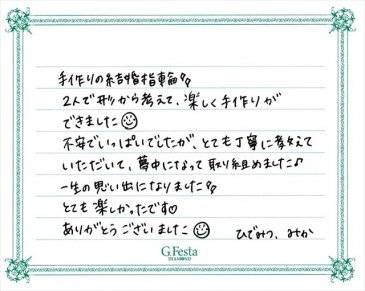 手作りの結婚指輪!!
2人で形から考えて、楽しく手作りが
できました☺
不安でいっぱいでしたが、とても丁寧に教えて
いただいて、夢中になって取り組めました♪
一生の思い出になりました!!
とても楽しかったです♡
ありがとうございました☺
ひでみつ、みか
G.Festa
DIAMOND